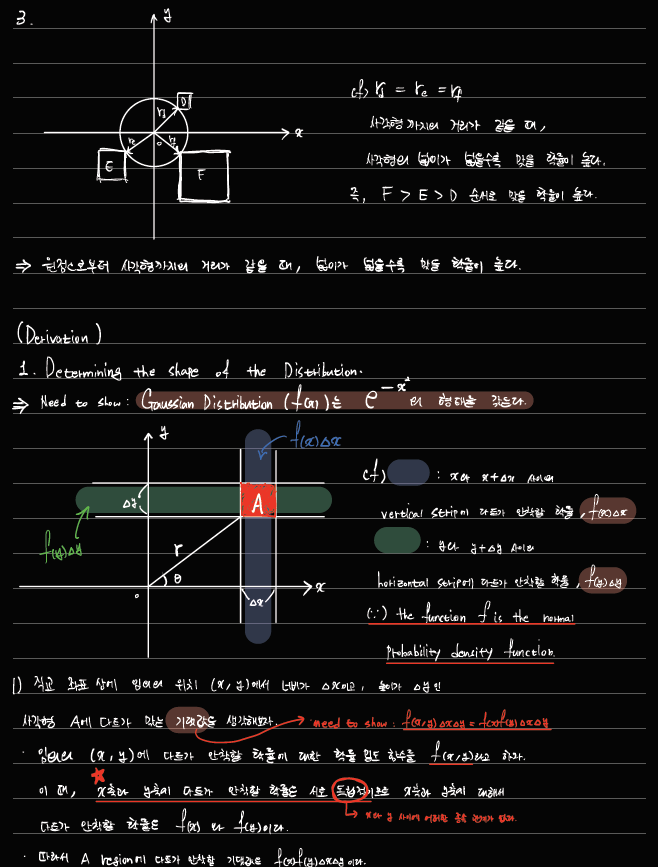 3.
y
x
o
r_d
r_e
r_f
D
E
F
cf) r_d = r_e = r_f
사각형 까지의 거리가 같을 때,
사각형의 넓이가 넓을수록 맞을 확률이 높다.
즉, F > E > D 순서로 맞을 확률이 높다.
⇒ 원점으로부터 사각형까지의 거리가 같을 때, 넓이가 넓을수록 맞을 확률이 높다.
(Derivation)
1. Determining the shape of the Distribution.
⇒ Need to show: Gaussian Distribution (f(x))는 e^{-x²} 의 형태를 갖는다.
y
f(x)Δx
Δy
A
f(y)Δy
r
θ
o
Δx
x
cf) : x와 x+Δx 사이의
vertical strip에 다트가 안착할 확률, f(x)Δx
: y와 y+Δy 사이의
horizontal strip에 다트가 안착할 확률, f(y)Δy
(∵) the function f is the normal
Probability density function.
1) 직교 좌표 상에 임의의 위치 (x, y)에서 너비가 Δx이고, 높이가 Δy인
사각형 A에 다트가 맞는 기댓값을 생각해보자. → need to show: f(x,y)ΔxΔy = f(x)f(y)ΔxΔy
· 임의의 (x, y)에 다트가 안착할 확률에 대한 확률 밀도 함수를 f(x,y)라고 하자.
이 때, x축과 y축에 다트가 안착할 확률은 서로 독립적이므로 x축과 y축에 대해서
→ x와 y 사이에 어떠한 종속 관계가 없다.
다트가 안착할 확률은 f(x) 와 f(y)이다.
· 따라서 A region에 다트가 안착할 기댓값은 f(x)f(y)ΔxΔy 이다.